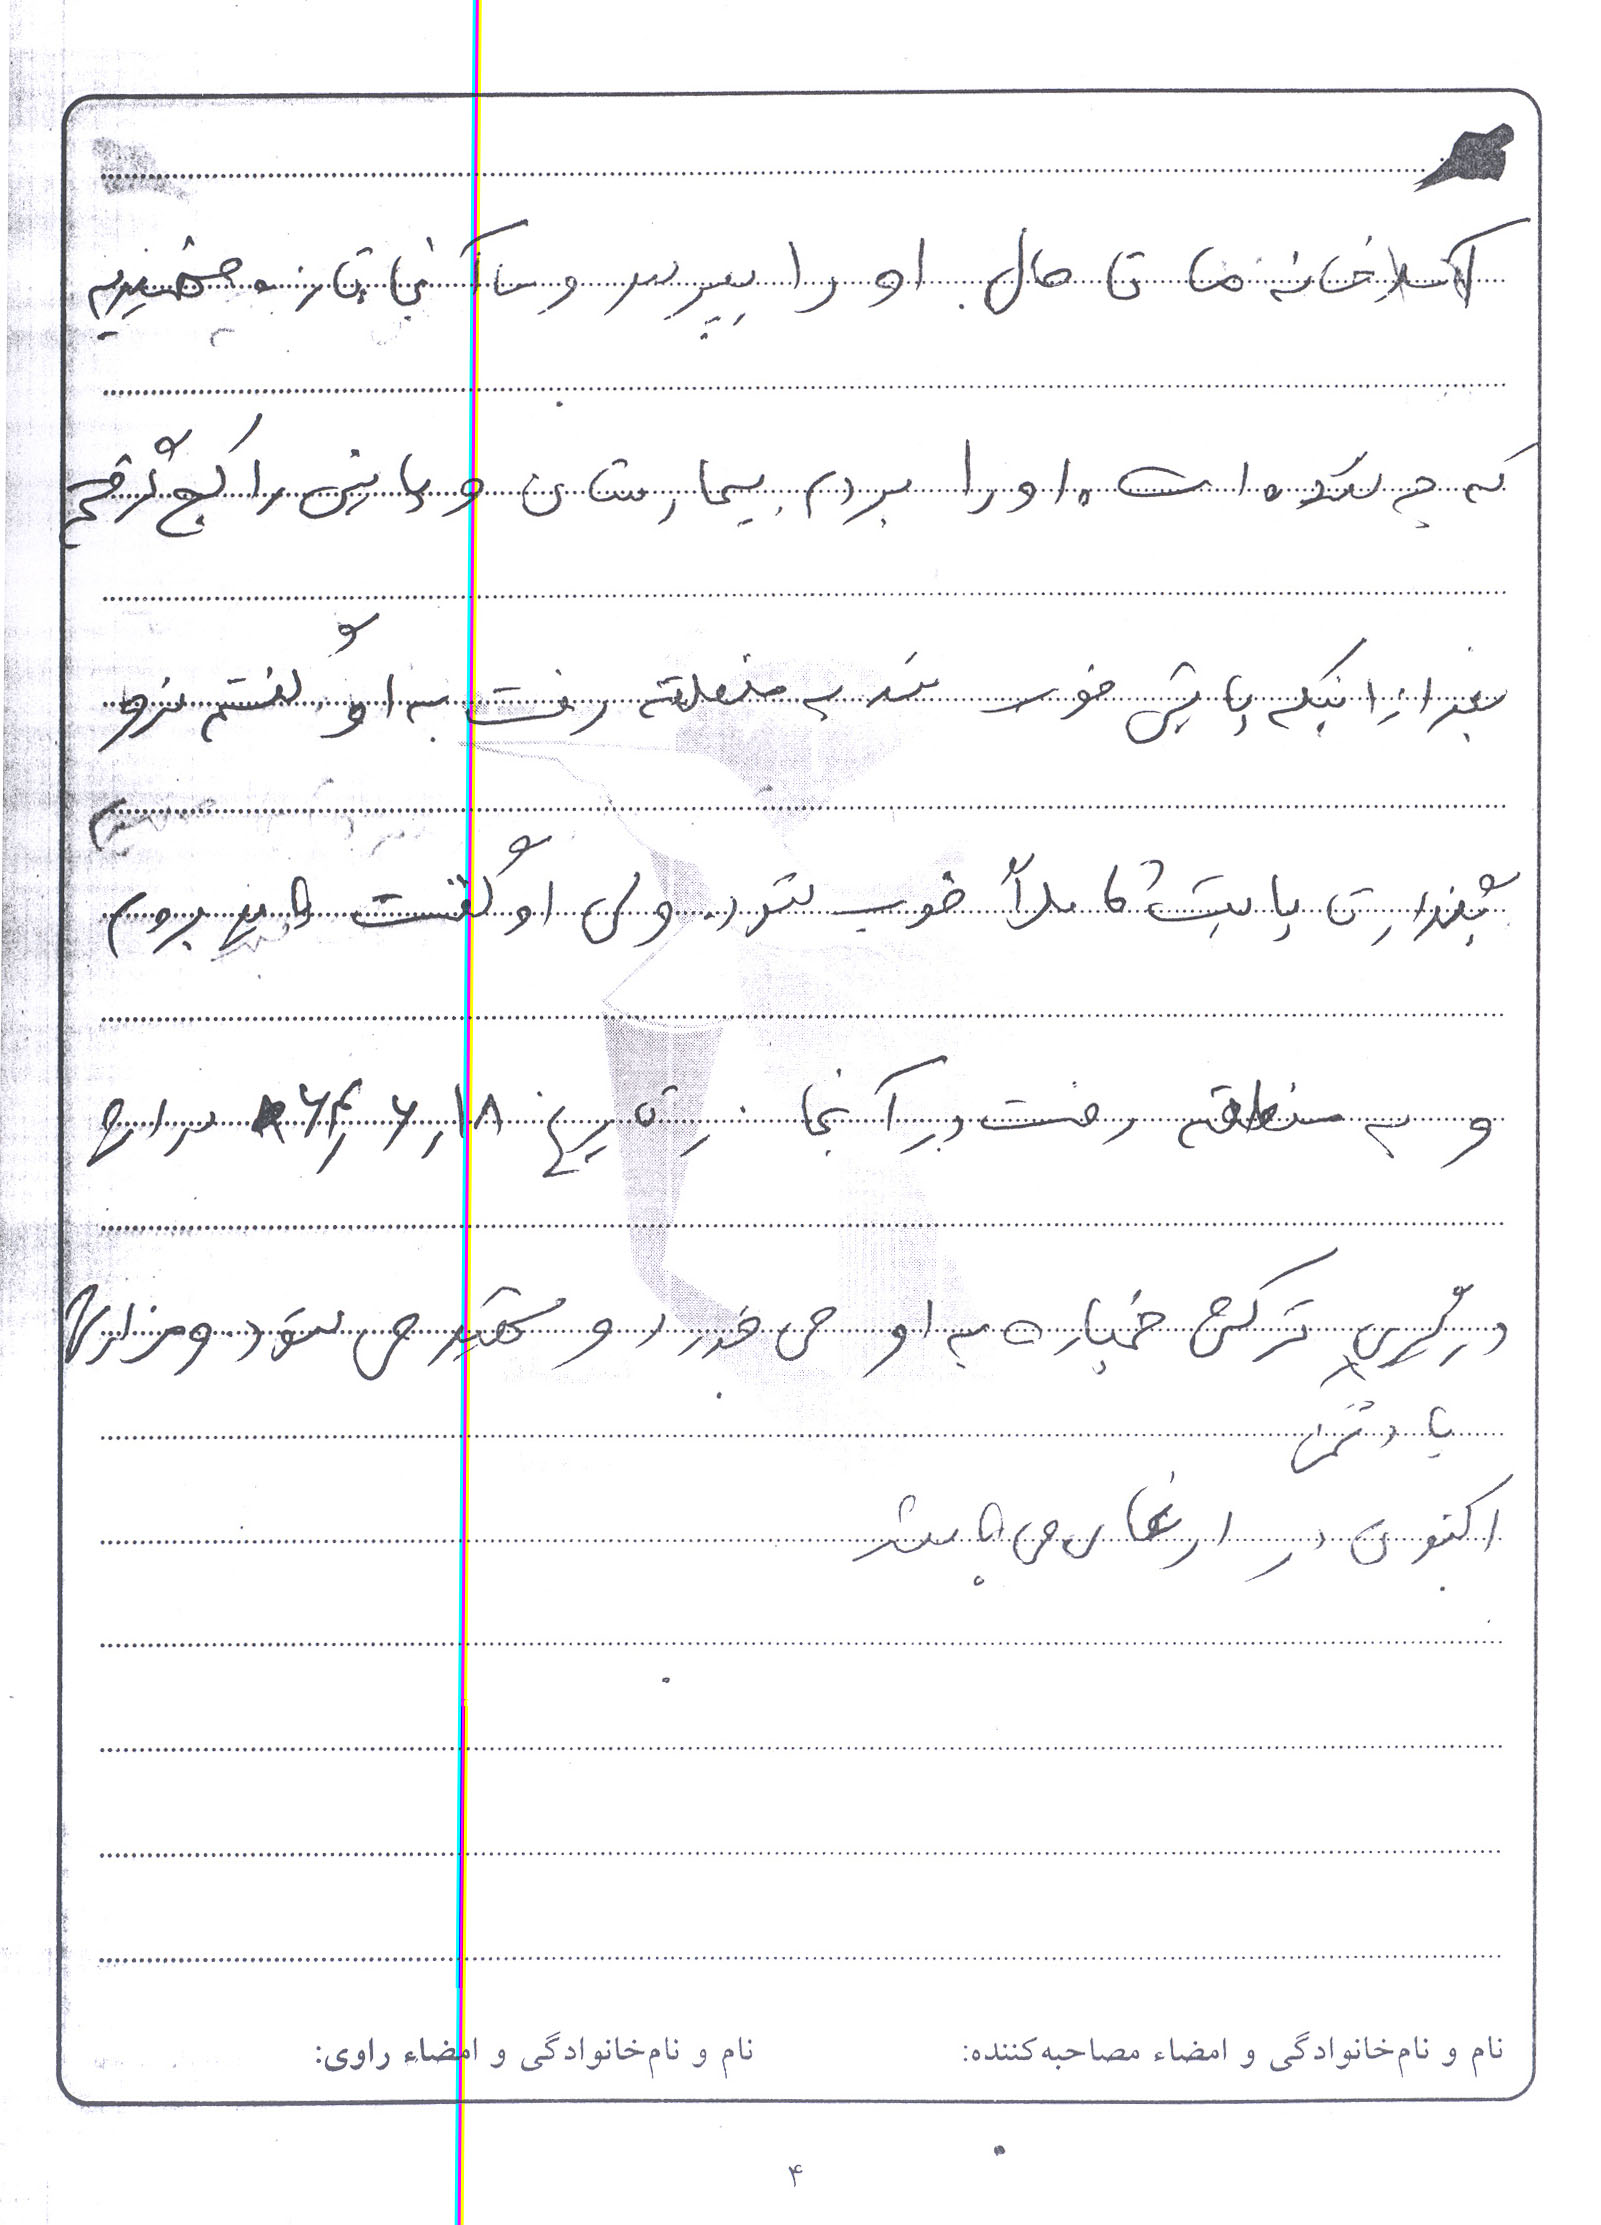 خانه ما تا حال او را بپرسد و ما آنجا تازه فهمیدیم
که چه شده است او را بردم بیمارستان و پایش را گچ گرفتم
بعد از اینکه پایش خوب شد به منطقه رفت به او گفتم نرو
بگذار تا پایت کاملاً خوب شود. ولی او گفت باید بروم
و به منطقه رفت در آنجا در تاریخ ۱۸٫۶٫۶۴ در اثر
درگیری ترکش خمپاره به او می خورد و شهید می شود. ومزارش
با دشمن
اکنون در می باشد
نام و نام‌خانوادگی و امضاء مصاحبه‌کننده: نام و نام‌خانوادگی و امضاء راوی:
۴